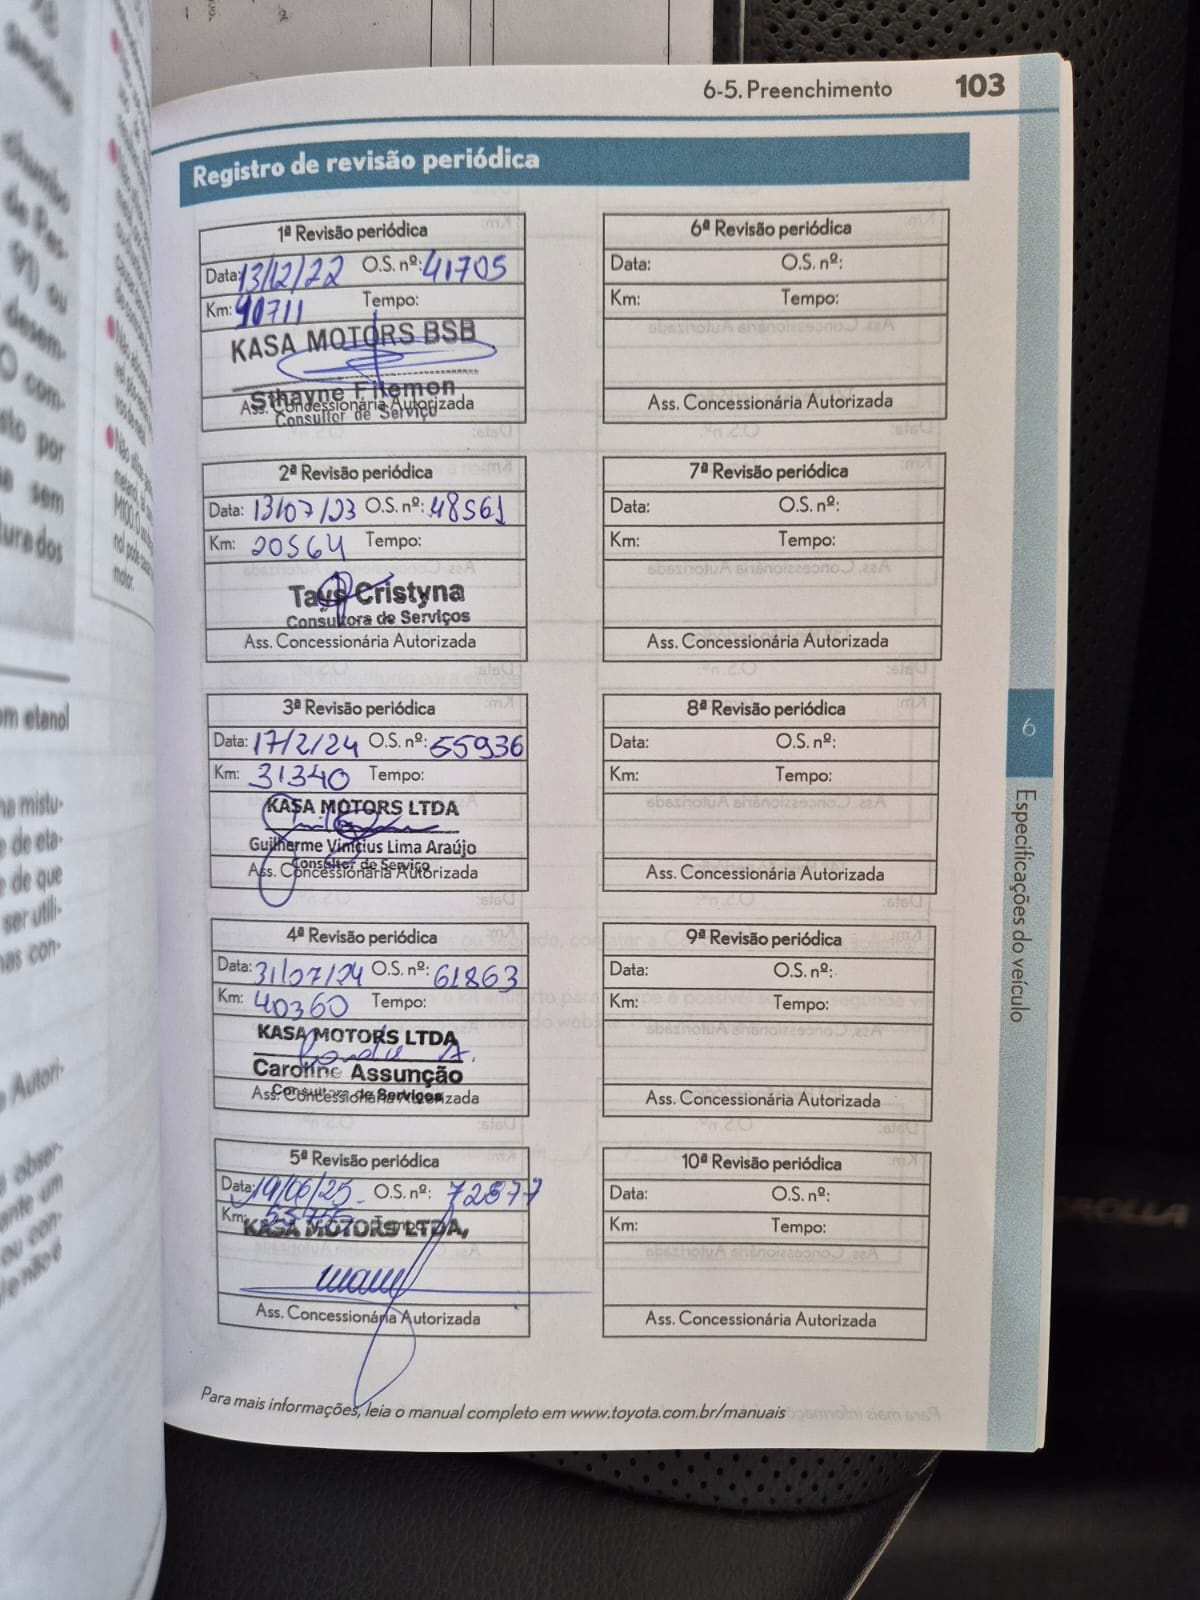 6-5. Preenchimento 103
Registro de revisão periódica
1ª Revisão periódica
Data: 13/12/22 O.S. nº: 41705
Km: 10711 Tempo:
KASA MOTORS BSB
Sthayne Filemon
Consultor de Serviço
Ass. Concessionária Autorizada
2ª Revisão periódica
Data: 13/07/23 O.S. nº: 48561
Km: 20564 Tempo:
Tays Cristyna
Consultora de Serviços
Ass. Concessionária Autorizada
3ª Revisão periódica
Data: 17/2/24 O.S. nº: 55936
Km: 31340 Tempo:
KASA MOTORS LTDA
Guilherme Vinícius Lima Araújo
Consultor de Serviço
Ass. Concessionária Autorizada
4ª Revisão periódica
Data: 31/07/24 O.S. nº: 61863
Km: 40360 Tempo:
KASA MOTORS LTDA
Caroline Assunção
Consultora de Serviços
Ass. Concessionária Autorizada
5ª Revisão periódica
Data: 19/06/25 O.S. nº:
Km: Tempo:
KASA MOTORS LTDA,
Ass. Concessionária Autorizada
6ª Revisão periódica
Data: O.S. nº:
Km: Tempo:
Ass. Concessionária Autorizada
7ª Revisão periódica
Data: O.S. nº:
Km: Tempo:
Ass. Concessionária Autorizada
8ª Revisão periódica
Data: O.S. nº:
Km: Tempo:
Ass. Concessionária Autorizada
9ª Revisão periódica
Data: O.S. nº:
Km: Tempo:
Ass. Concessionária Autorizada
10ª Revisão periódica
Data: O.S. nº:
Km: Tempo:
Ass. Concessionária Autorizada
6
Especificações do veículo
Para mais informações, leia o manual completo em www.toyota.com.br/manuais